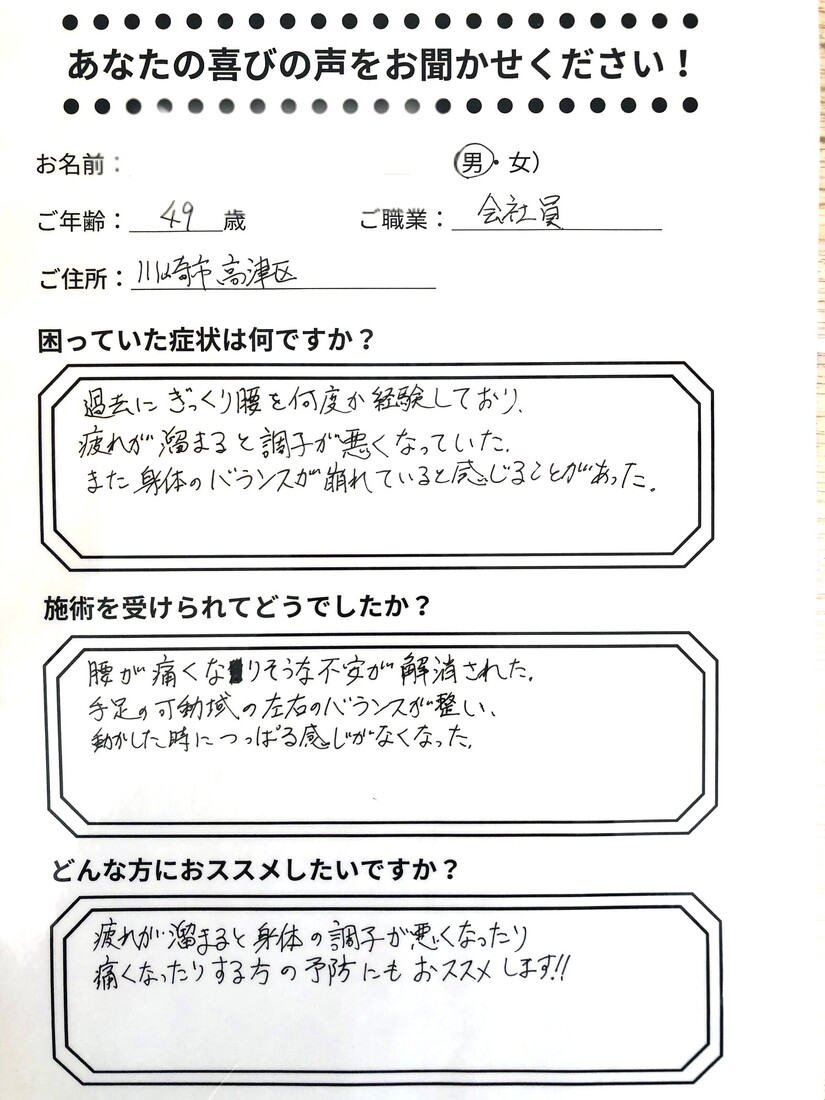 あなたの喜びの声をお聞かせください！
お名前： (男・女)
ご年齢： 49 歳 ご職業： 会社員
ご住所： 川崎市高津区
困っていた症状は何ですか？
過去にぎっくり腰を何度か経験しており、
疲れが溜まると調子が悪くなっていた。
また身体のバランスが崩れていると感じることがあった。
施術を受けられてどうでしたか？
腰が痛くなりそうな不安が解消された。
手足の可動域の左右のバランスが整い、
動かした時につっぱる感じがなくなった。
どんな方におススメしたいですか？
疲れが溜まると身体の調子が悪くなったり
痛くなったりする方の予防にもおススメします!!